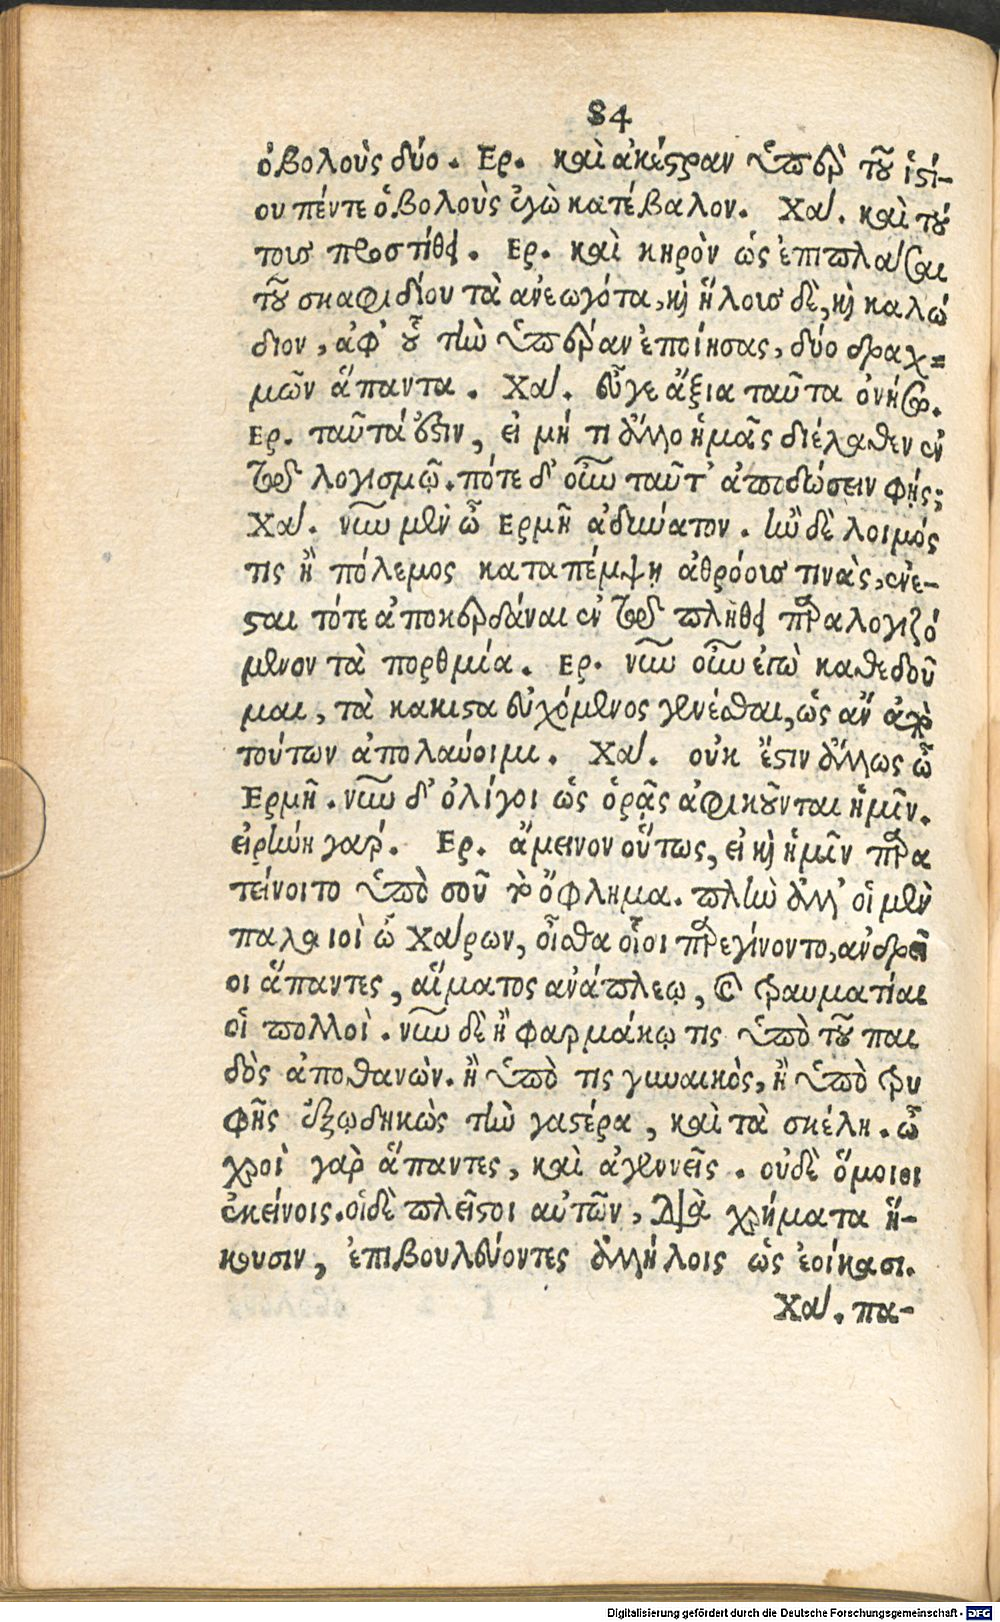 84
ὀβολοὺς δύο. Ερ. καὶ ἀκέστραν ὑπὲρ τοῦ ἱστί-
ου πέντε ὀβολοὺς ἐγὼ κατέβαλον. Χαρ. καὶ τού
τοις προστίθει. Ερ. καὶ κηρὸν ὡς ἐπιπλάσαι
τοῦ σκαφιδίου τὰ ἀνεωγότα, καὶ ἥλοις δὲ, καὶ καλώ
διον, ἀφ' οὗ τὴν ὑπέραν ἐποίησας, δύο δραχ=
μῶν ἅπαντα. Χαρ. εὖγε ἄξια ταῦτα ὀνήσω.
Ερ. ταῦτά ἐστιν, εἰ μή τι ἄλλο ἡμᾶς διέλαθεν ἐν
τῷ λογισμῷ. πότε δ' οὖν ταῦτ' ἀποδώσειν φῄς;
Χαρ. νῦν μὲν ὦ Ερμῆ ἀδύνατον. ἢν δὲ λοιμός
τις ἢ πόλεμος καταπέμψῃ ἀθρόοις τινὰς, ἐνέ-
σται τότε ἀποκερδάναι ἐν τῷ πλήθει παραλογιζό
μενον τὰ πορθμία. Ερ. νῦν οὖν ἐγὼ καθεδοῦ
μαι, τὰ κακιστα εὐχόμενος γενέσθαι, ὡς ἂν ἀπὸ
τούτων ἀπολαύοιμι. Χαρ. οὐκ ἔστιν ἄλλως ὦ
Ερμῆ. νῦν δ' ὀλίγοι ὡς ὁρᾷς ἀφικοῦνται ἡμῖν.
εἰρήνη γαρ. Ερ. ἄμεινον οὕτως, εἰ καὶ ἡμῖν παρα
τείνοιτο ὑπὸ σοῦ τὸ ὄφλημα. πλὴν ἀλλ' οἱ μὲν
παλαιοὶ ὦ Χάρων, οἶσθα οἷοι παρεγίνοντο, ἀνδρεῖ
οι ἅπαντες, αἵματος ἀνάπλεῳ, καὶ τραυματίαι
οἱ πολλοὶ. νῦν δὲ ἢ φαρμάκῳ τις ὑπὸ τοῦ παι
δὸς ἀποθανὼν. ἢ ὑπὸ τις γυναικὸς, ἢ ὑπὸ τρυ
φῆς ἐξῳδηκὼς τὴν γαστέρα, καὶ τὰ σκέλη. ὦ
χροὶ γὰρ ἅπαντες, καὶ ἀγεννεῖς. οὐδὲ ὅμοιοι
ἐκείνοις. οἱ δὲ πλεῖστοι αὐτῶν, διὰ χρήματα ἥ-
κουσιν, ἐπιβουλεύοντες ἀλλήλοις ὡς ἐοίκασι.
Χαρ. πα-
Digitalisierung gefördert durch die Deutsche Forschungsgemeinschaft - DFG